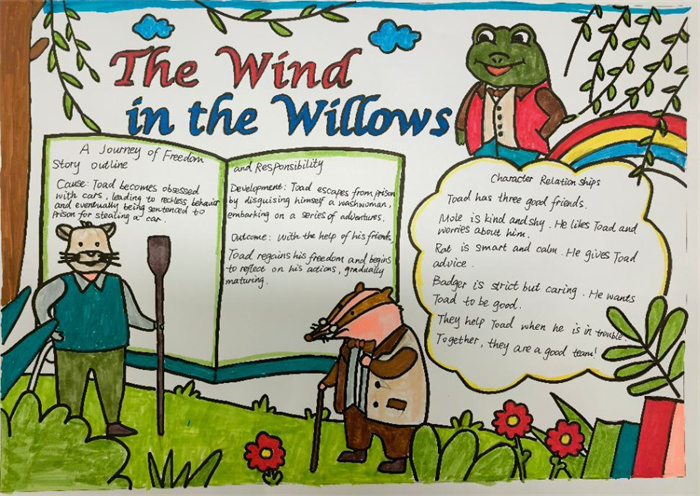 The Wind
in the Willows
A Journey of Freedom
and Responsibility
Story outline
Cause: Toad becomes obsessed
with cars, leading to reckless behavior
and eventually being sentenced to
prison for stealing a car.
Development: Toad escapes from prison
by disguising himself a washwoman,
embarking on a series of adventures.
Outcome: with the help of his friends,
Toad regains his freedom and begins
to reflect on his actions, gradually
maturing.
Character Relationships
Toad has three good friends.
Mole is kind and shy. He likes Toad and
worries about him.
Rat is smart and calm. He gives Toad
advice.
Badger is strict but caring. He wants
Toad to be good.
They help Toad when he is in trouble.
Together, they are a good team!